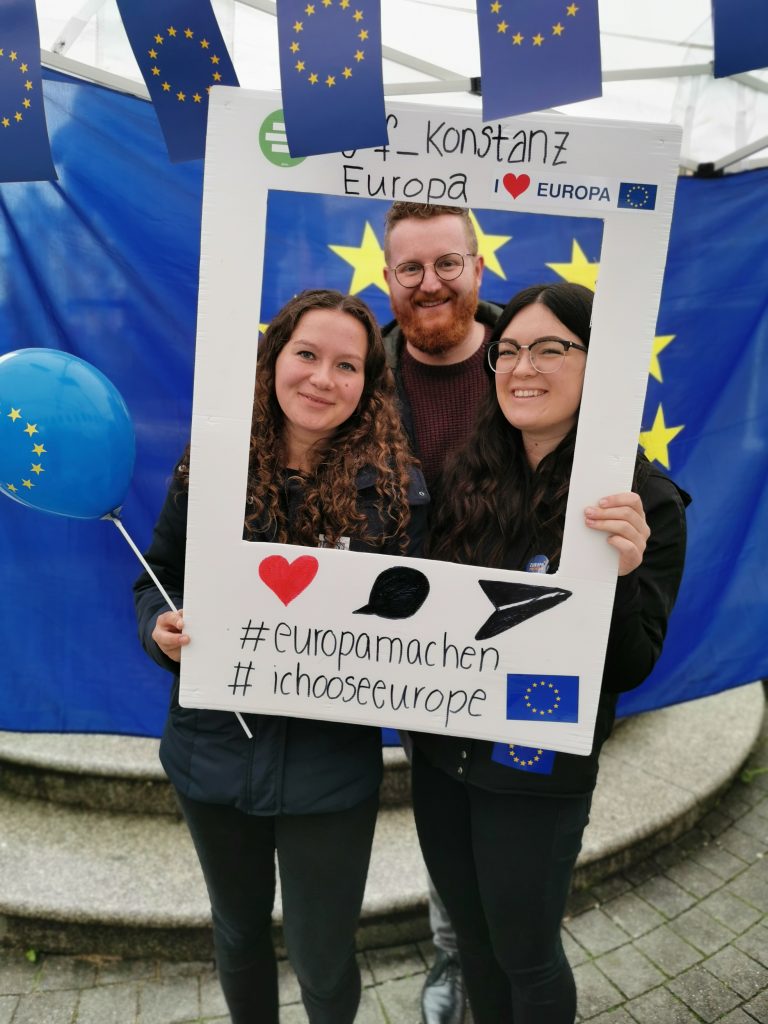 f_Konstanz
Europa
I ❤ EUROPA
#europamachen
# ichooseeurope